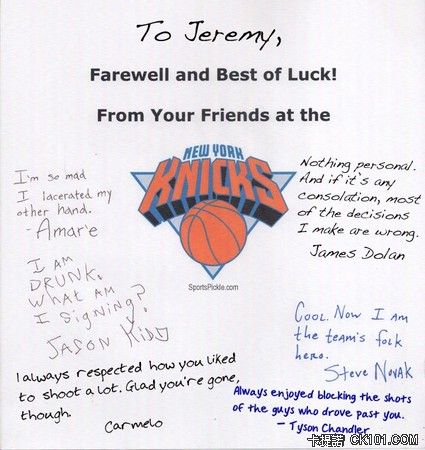 To Jeremy,
Farewell and Best of Luck!
From Your Friends at the
NEW YORK
KNICKS
SportsPickle.com
I'm so mad
I lacerated my
other hand.
- Amar'e
Nothing personal.
And if it's any
consolation, most
of the decisions
I make are wrong.
James Dolan
I AM
DRUNK.
WHAT AM
I SIGNING?
JASON KIDD
COOL. NOW I AM
the team's folk
hero.
STEVE NOVAK
I always respected how you liked
to shoot a lot. Glad you're gone,
though.
Carmelo
Always enjoyed blocking the shots
of the guys who drove past you.
- Tyson Chandler
卡提諾 CK101.COM